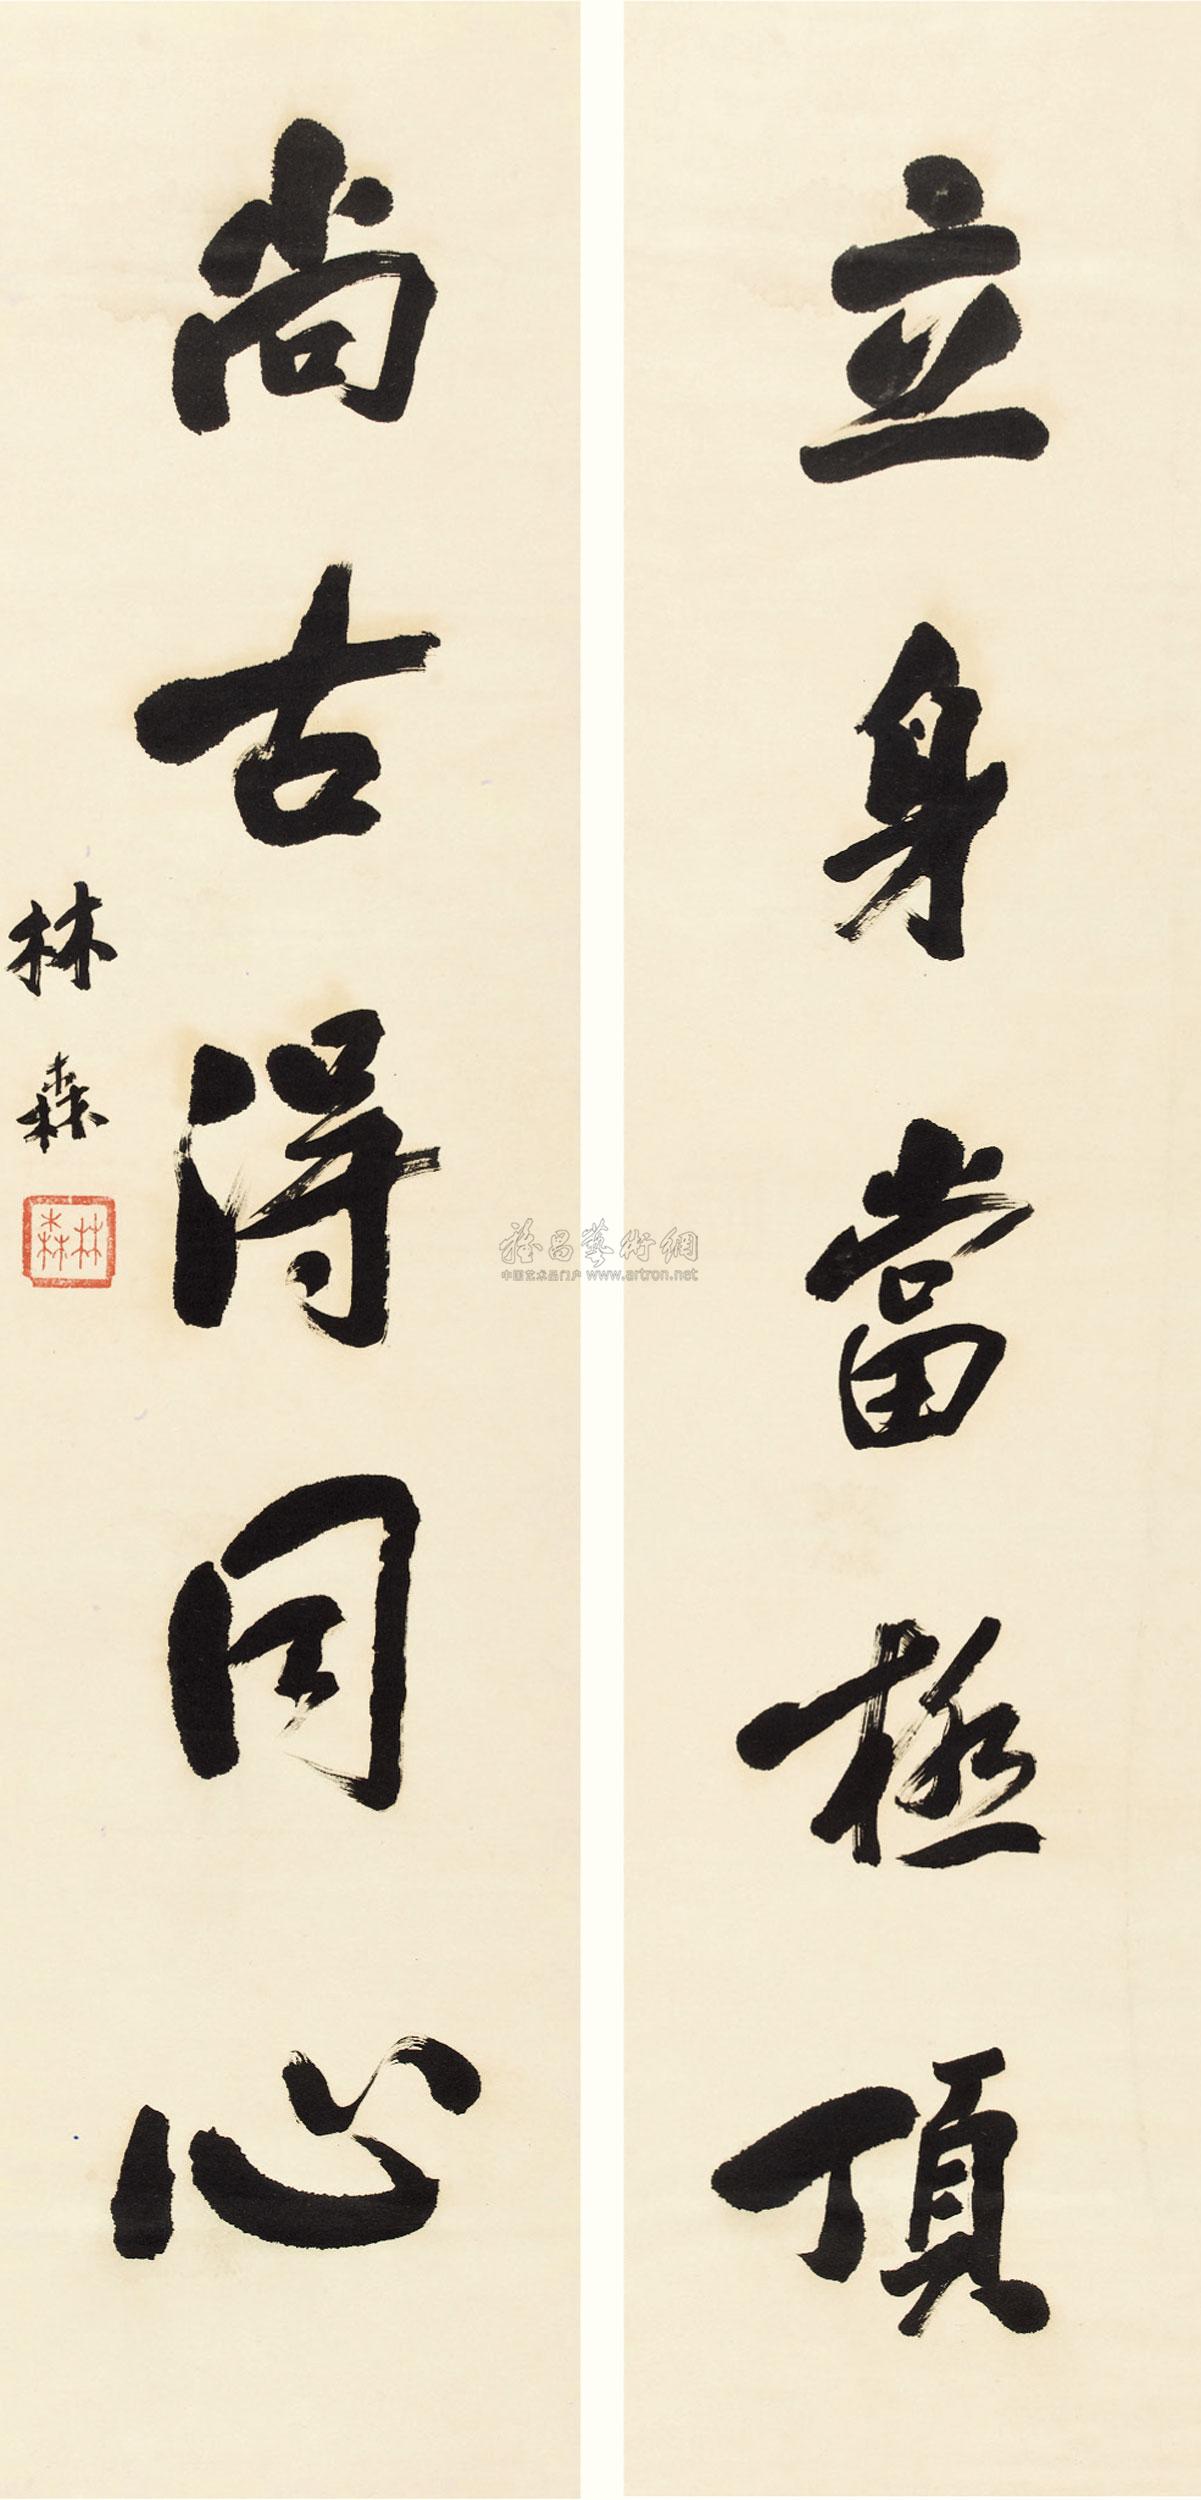 立身當極頂
尚古得同心
林森
林森
雅昌藝術網
中国艺术品门户 www.artron.net